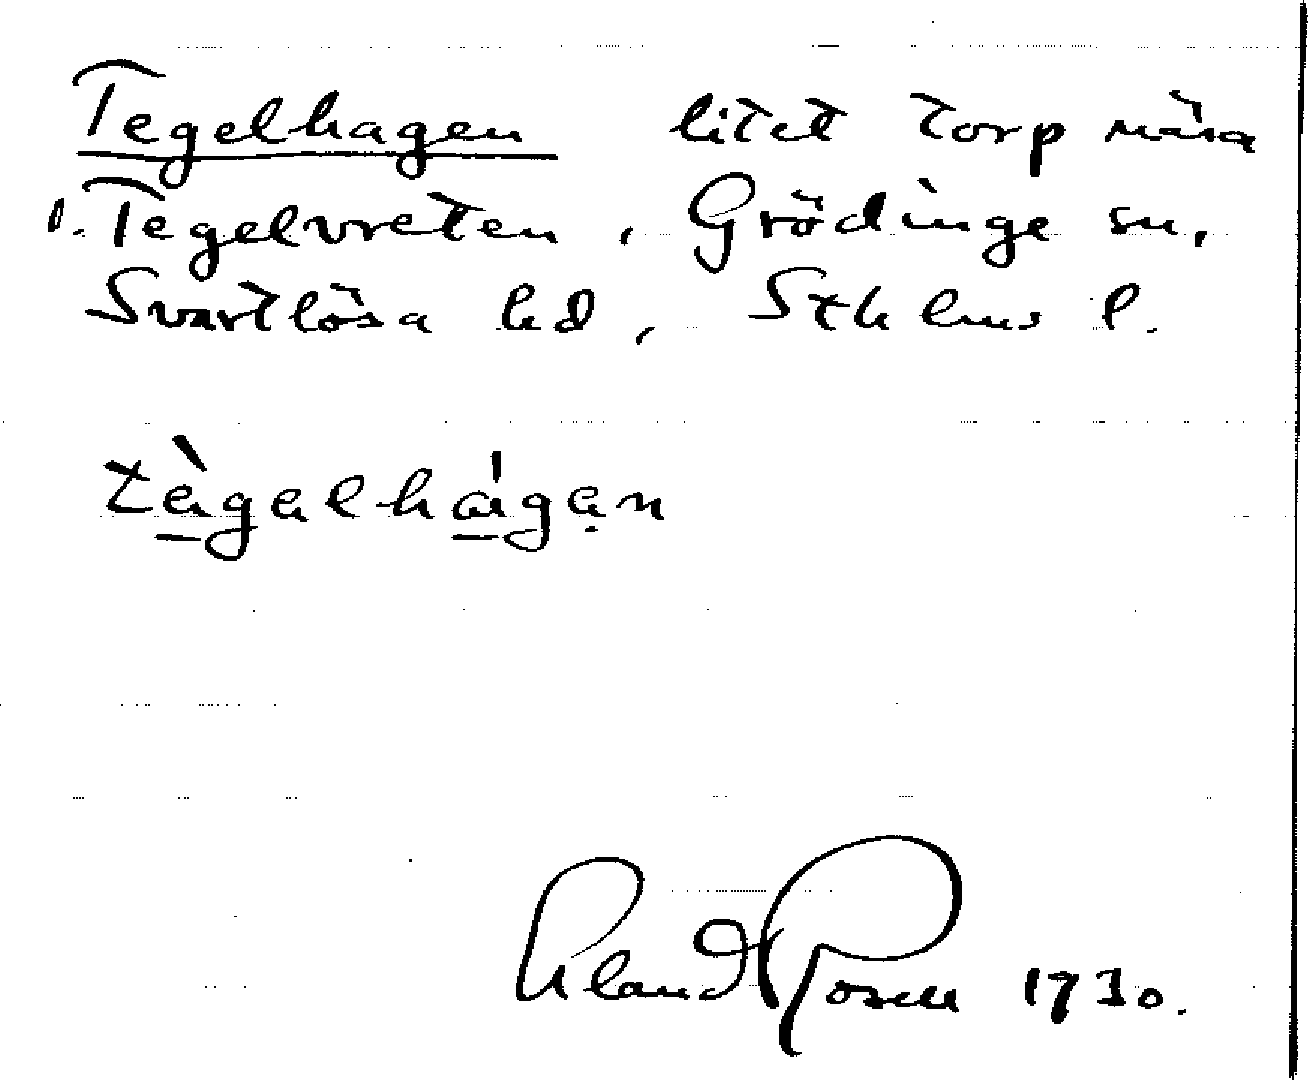 Tegelhagen litet torp nära
o. Tegelvreten, Grödinge sn,
Svartlösa hd, Sthlms l.
tègelhágen
Rosell 1930.